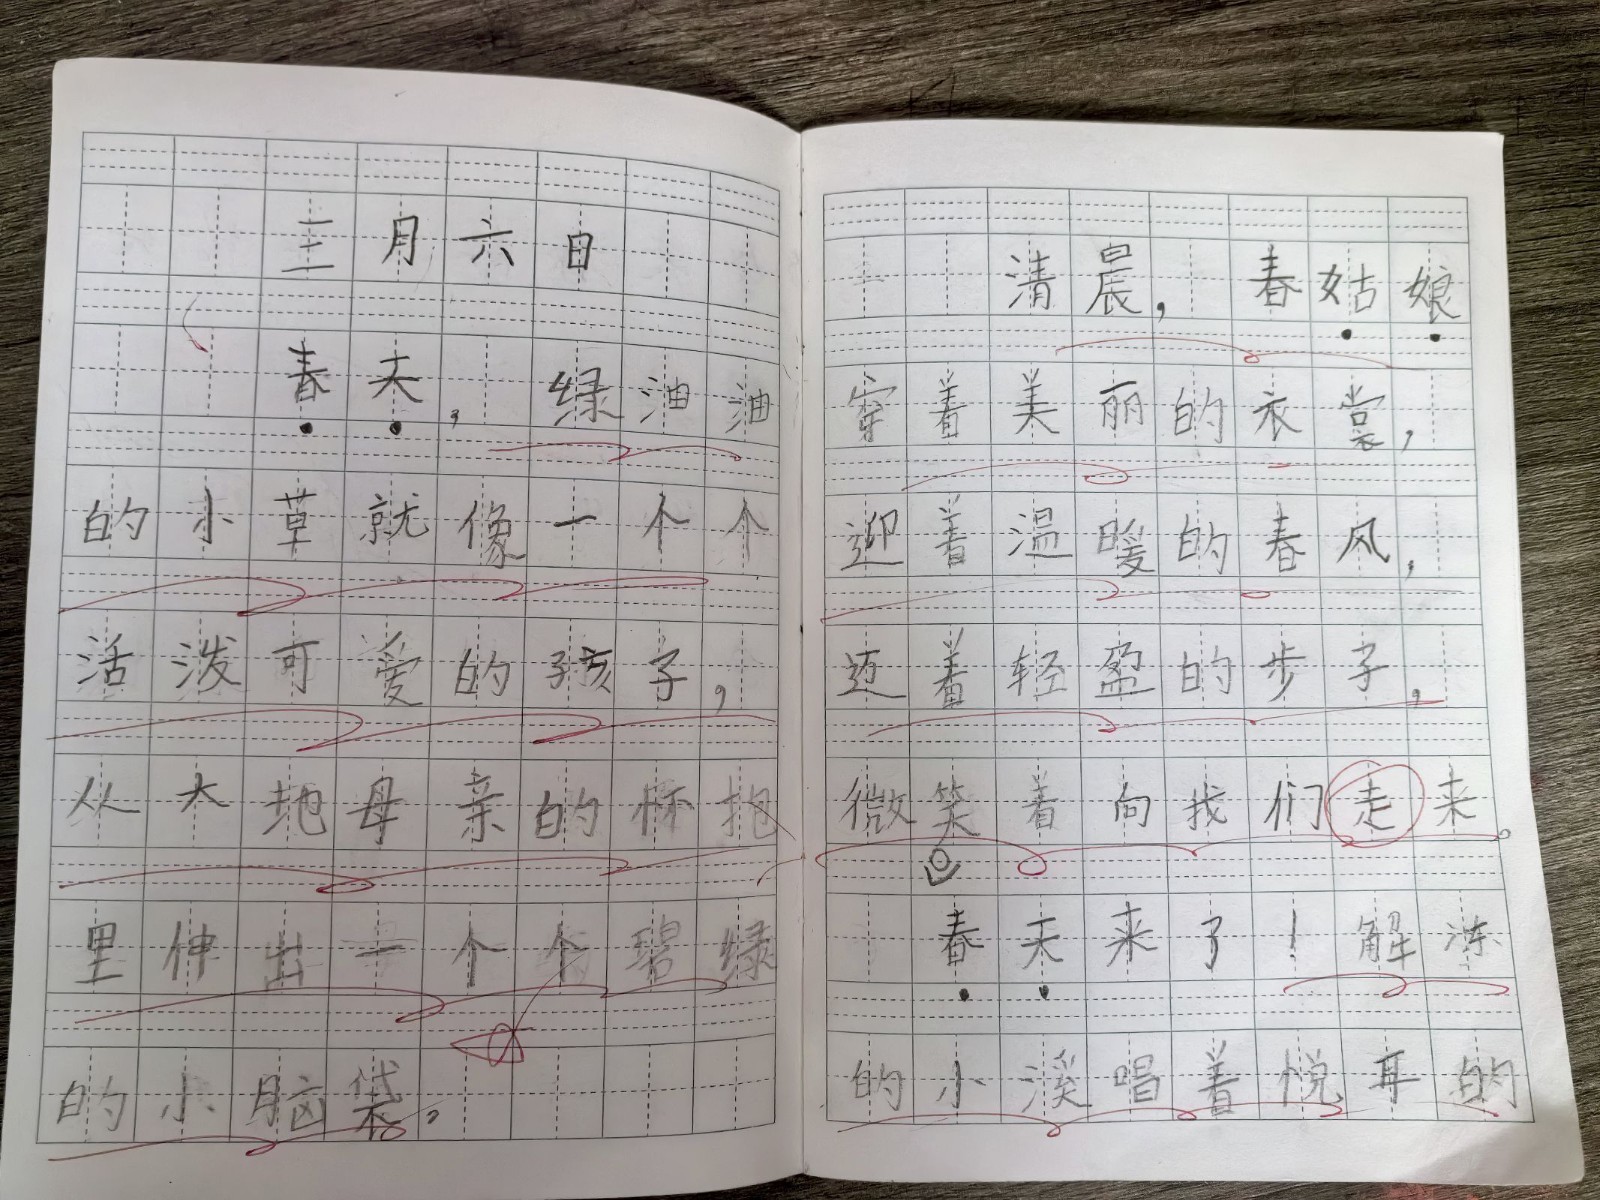 三月六日
春天，绿油油
的小草就像一个个
活泼可爱的孩子，
从大地母亲的怀抱
里伸出一个个碧绿
的小脑袋，
清晨，春姑娘
穿着美丽的衣裳，
迎着温暖的春风，
迈着轻盈的步子，
微笑着向我们走来。
春天来了！解冻
的小溪唱着悦耳的